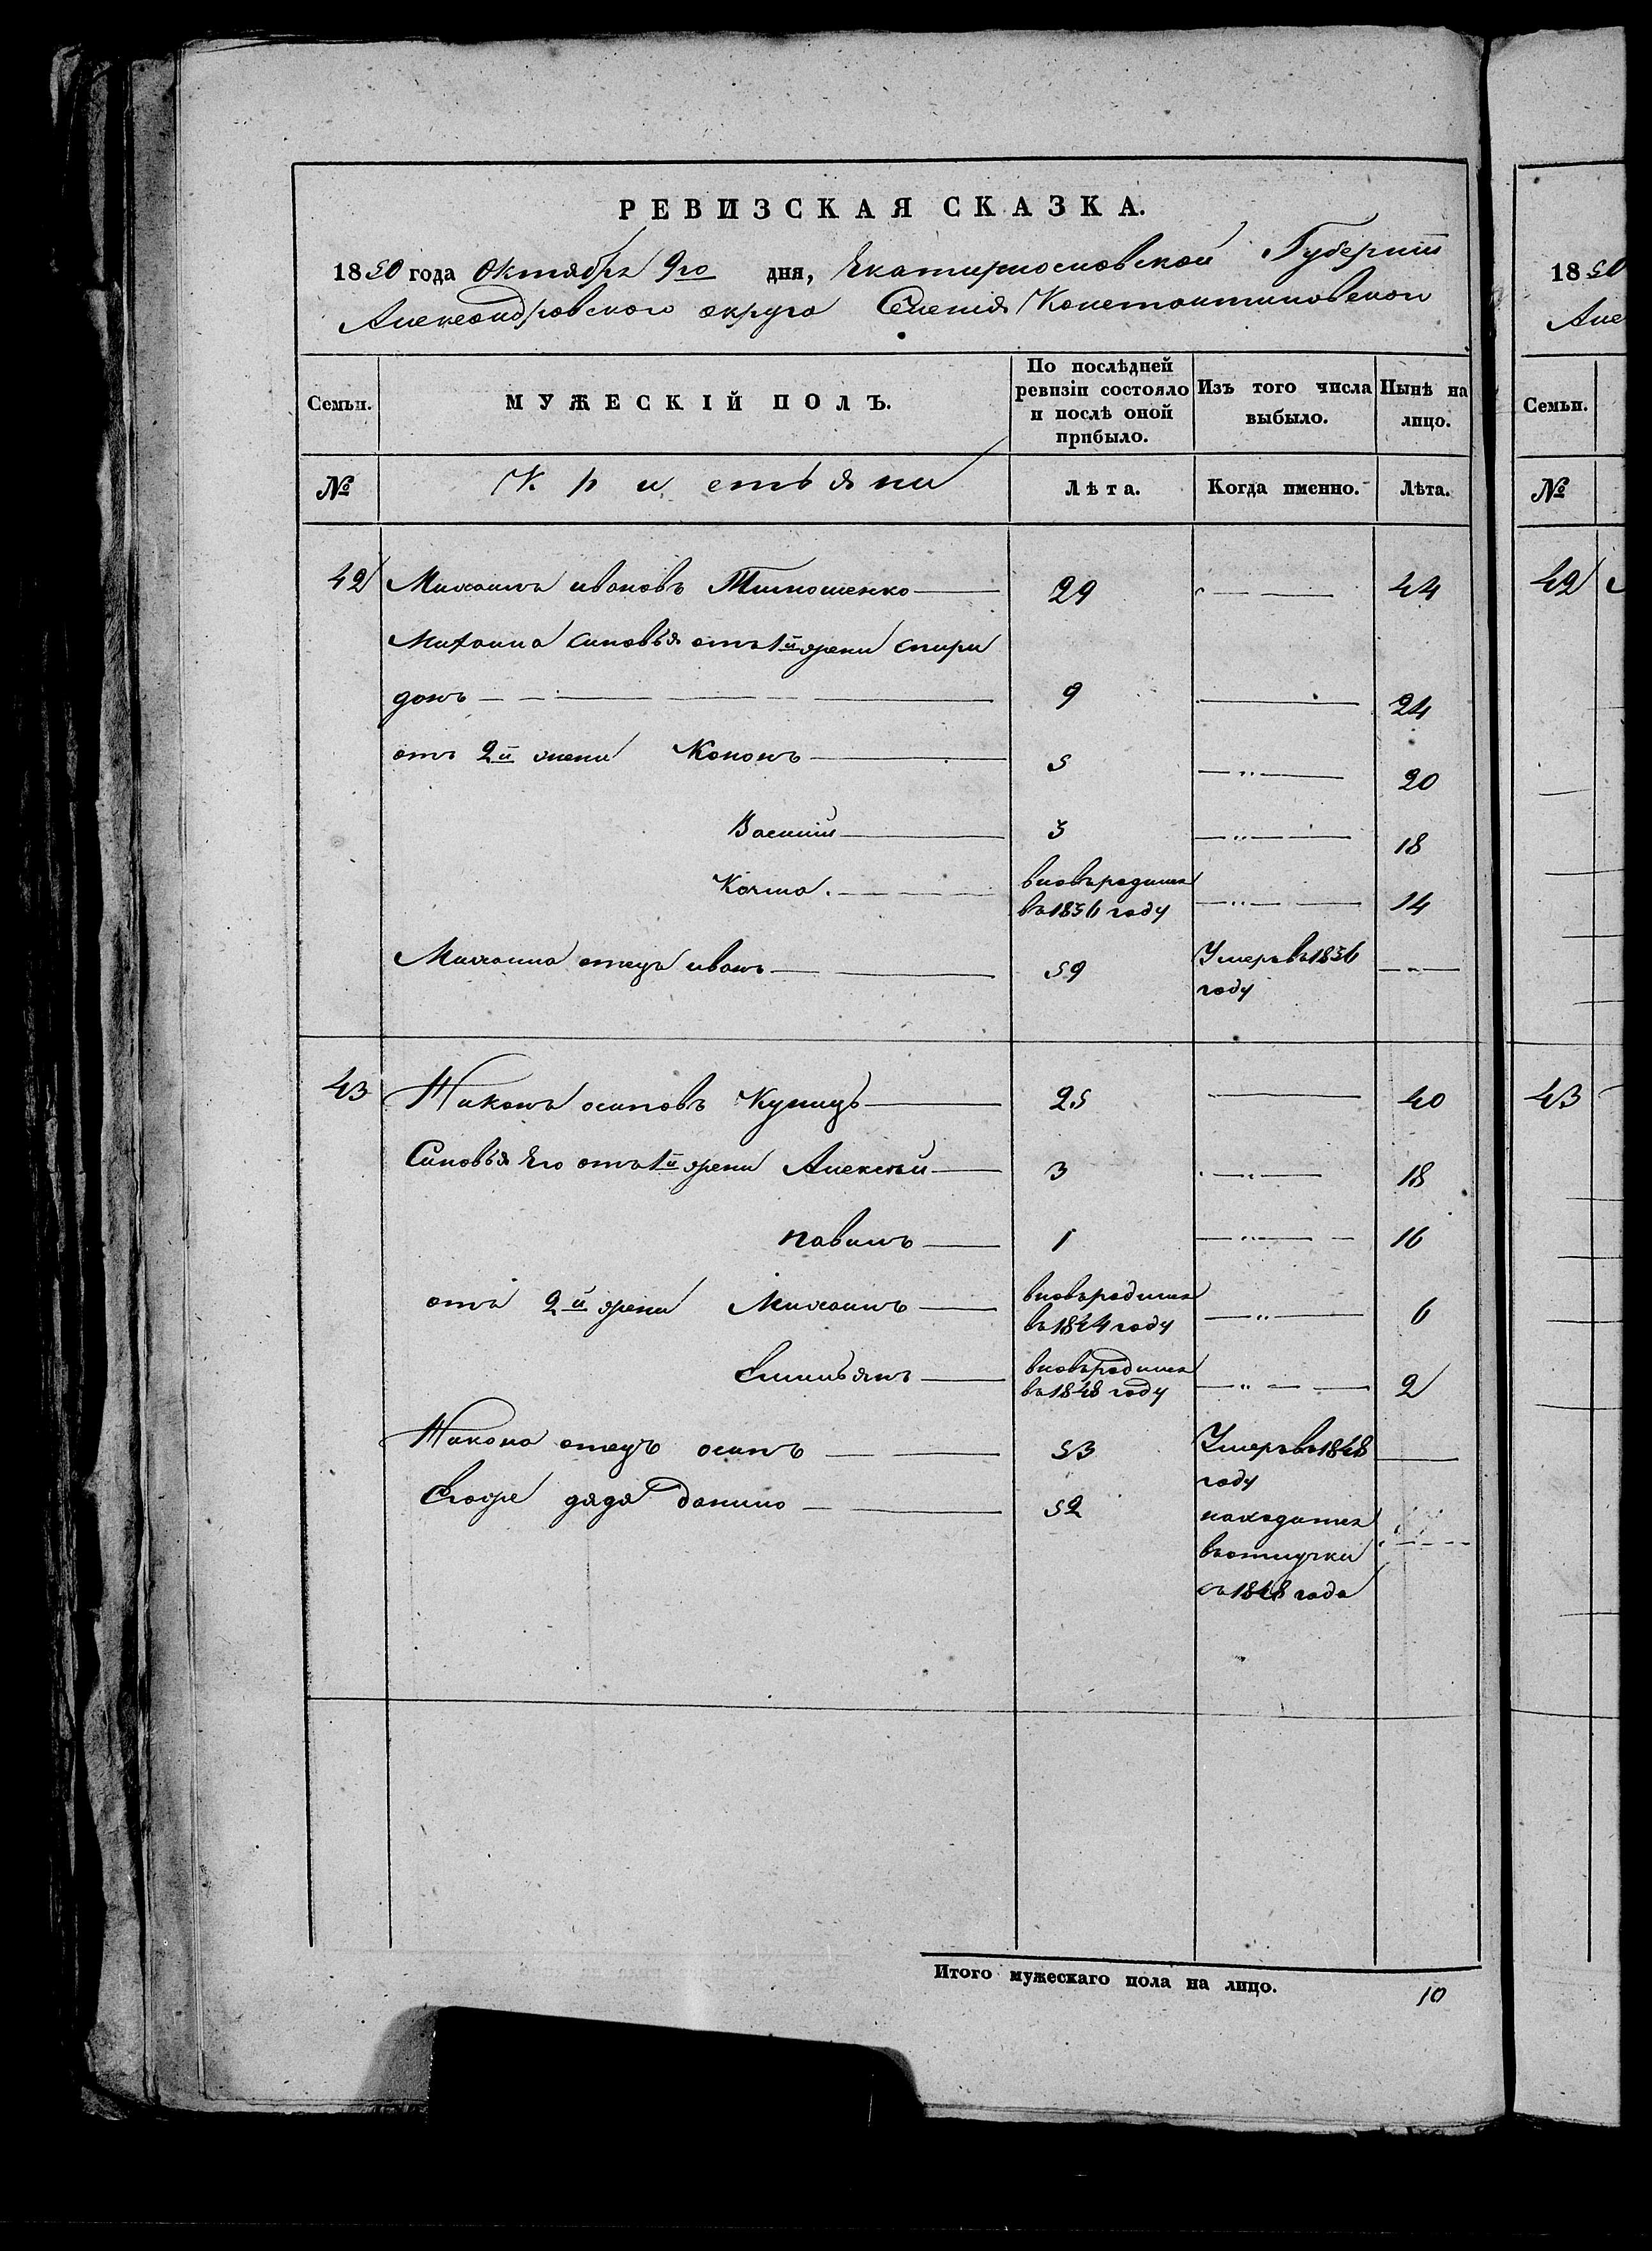 РЕВИЗСКАЯ СКАЗКА.
1850 года Октября 9го дня, Екатеринословской Губернии
Александровского округа Селения Константиновской
Семьи.
МУЖЕСКІЙ ПОЛЪ.
По послѣдней ревизіи состояло и послѣ оной прибыло.
Изъ того числа выбыло.
Нынѣ на лицо.
№
Кристьяни
Лѣта.
Когда именно.
Лѣта.
42 Михаилъ ивановъ Тимошенко 29 44
Михаила синовья отъ 1й жени спири
донъ 9 24
отъ 2й жени Кононъ 5 20
Василий 3 18
Козма. вновьродился въ 1836 году 14
Михаила отецъ иванъ 59 Умеръ въ 1836 году
43 Никонъ осиповъ Купицъ 25 40
Синовья Его отъ 1й жени Алексѣй 3 18
павилъ 1 16
отъ 2й жени Михаилъ вновьродился въ 1844 году 6
Емильянъ вновьродился въ 1848 году 2
Никона отецъ осипъ 53 Умеръ въ 1848 году
Егоже дядя данило 52 находится въ отлучки съ 1848 года
Итого мужескаго пола на лицо. 10
1850
Але
Семьи.
№
42
43